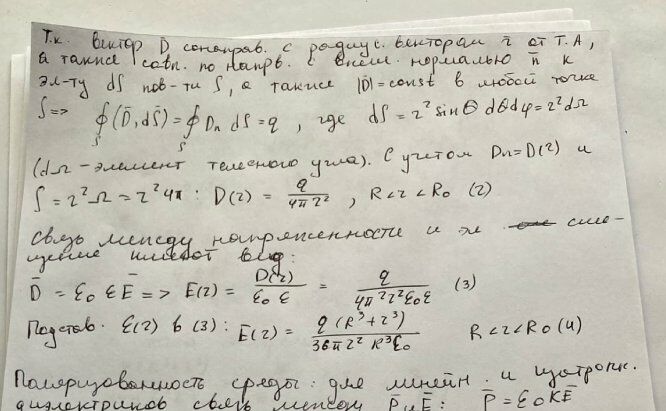 Т.к. вектор D̄ сонаправ. с радиус. вектором r̄ от Т.А,
а также совп. по напрв. с внеш. нормалью n̄ к
эл-ту dS пов-ти S, а также |D̄|=const в любой точке
S => ∮_S (D̄, dS̄) = ∮_S Dₙ dS = q , где dS = r² sinθ dθdφ = r² dΩ
(dΩ - элемент телесного угла). С учетом Dn = D(r) и
S = r²Ω = r² 4π : D(r) = q / 4πr² , R < r < R₀ (2)
связь между напряженности и эл сме-
щение имеют вид:
D̄ = ε₀ ε Ē => E(r) = D(r) / ε₀ ε = q / 4π²r²ε₀ε (3)
Подстав. ε(r) в (3) : E(r) = q (R³ + r³) / 36π r² R³ ε₀ R < r < R₀ (4)
Поляризованность среды: для линейн. и изотропн.
диэлектриков связь между P̄ и Ē : P̄ = ε₀ К Ē